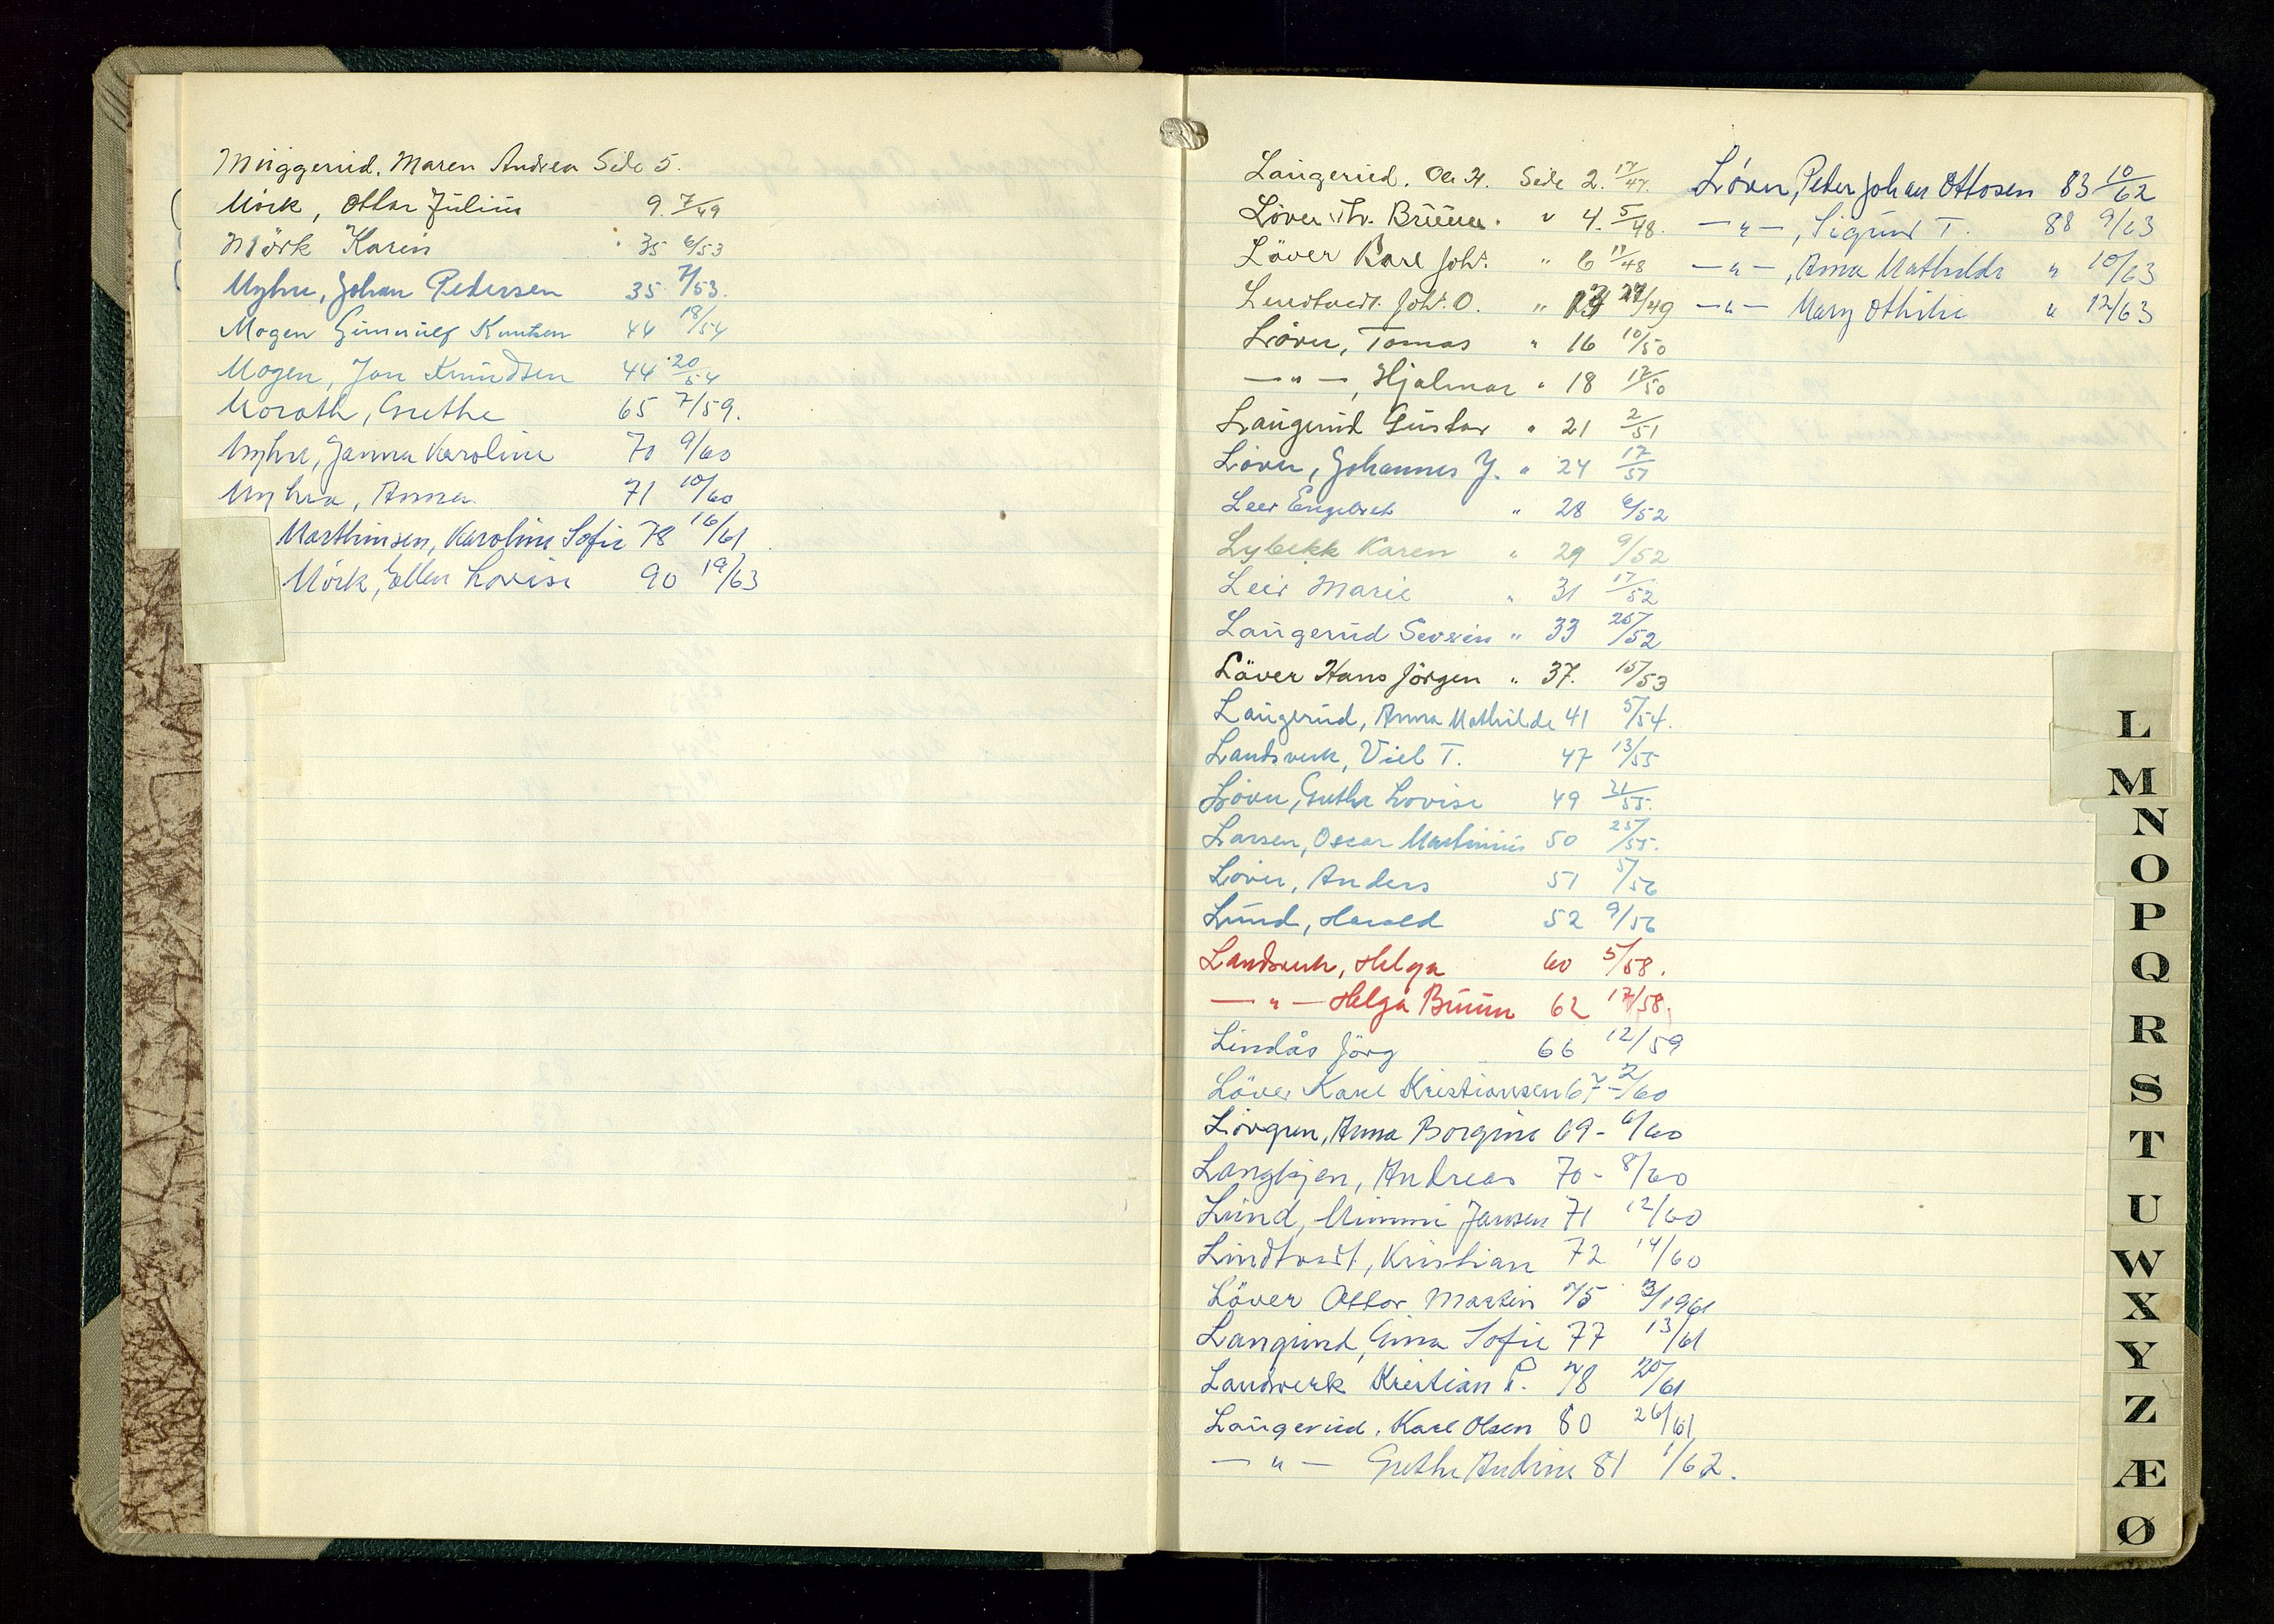 Muggerud, Maren Andrea Side 5.
Mörk, Ottar Julius 9. 7/49
Mörk Karen 35 6/53
Myhre, Johan Pedersen 35 7/53.
Mogen Gunnulf Knutsen 44 18/54
Mogen, Jon Knudsen 44 20/54
Moroth, Grethe 65 7/59.
Myhre, Janna Karoline 70 9/60
Myhra, Anna 71 10/60
Marthinsen, Karoline Sofie 78 16/61
Mörk, Ellen Lovise 90 19/63
Laugerud, Ole H. Side 2. 17/47.
Löver, Th. Bruun. " 4. 5/48.
Löver Karl Joh. " 6 17/48
Lindtvedt. Joh. O. " 13 27/49
Löver, Tomas " 16 10/50
— " —, Hjalmar " 18 17/50
Laugerud Gustav " 21 2/51
Löver, Johannes J. " 24 17/51
Leer Engebret " 28 6/52
Lybekk Karen " 29 9/52
Leer Marie " 31 17/52
Laugerud Severin " 33 25/52
Löver Hans Jörgen " 37. 15/53
Laugerud, Anna Mathilde 41 5/54.
Landsverk, Viel T. 47 13/55
Löver, Grethe Lovise 49 21/55.
Larsen, Oscar Martinius 50 25/55.
Löver, Anders 51 5/56
Lund, Harald 52 9/56
Landsverk, Helga 60 5/58.
— " — Helga Bruun 62 17/58.
Lindås Jörg 66 12/59
Löver Karl Kristiansen 67 - 2/60
Lövgren, Anna Borgine 69 - 6/60
Langkjen, Andreas 70 - 8/60
Lund, Mimmi Jansen 71 12/60
Lindtvedt, Kristian 72 14/60
Löver Ottar Martin 75 3/1961
Langerud, Gina Sofie 77 13/61
Landsverk Kristian P. 78 20/61
Laugerud, Karl Olsen 80 26/61
— " — Grethe Andrine 81 1/62.
Löver, Peder Johan Ottosen 83 10/62
— " —, Sigurd T. 88 9/63
— " —, Anna Mathilde " 10/63
— " — Mary Othilie " 12/63
L
M
N
O
P
Q
R
S
T
U
W
X
Y
Z
Æ
Ø